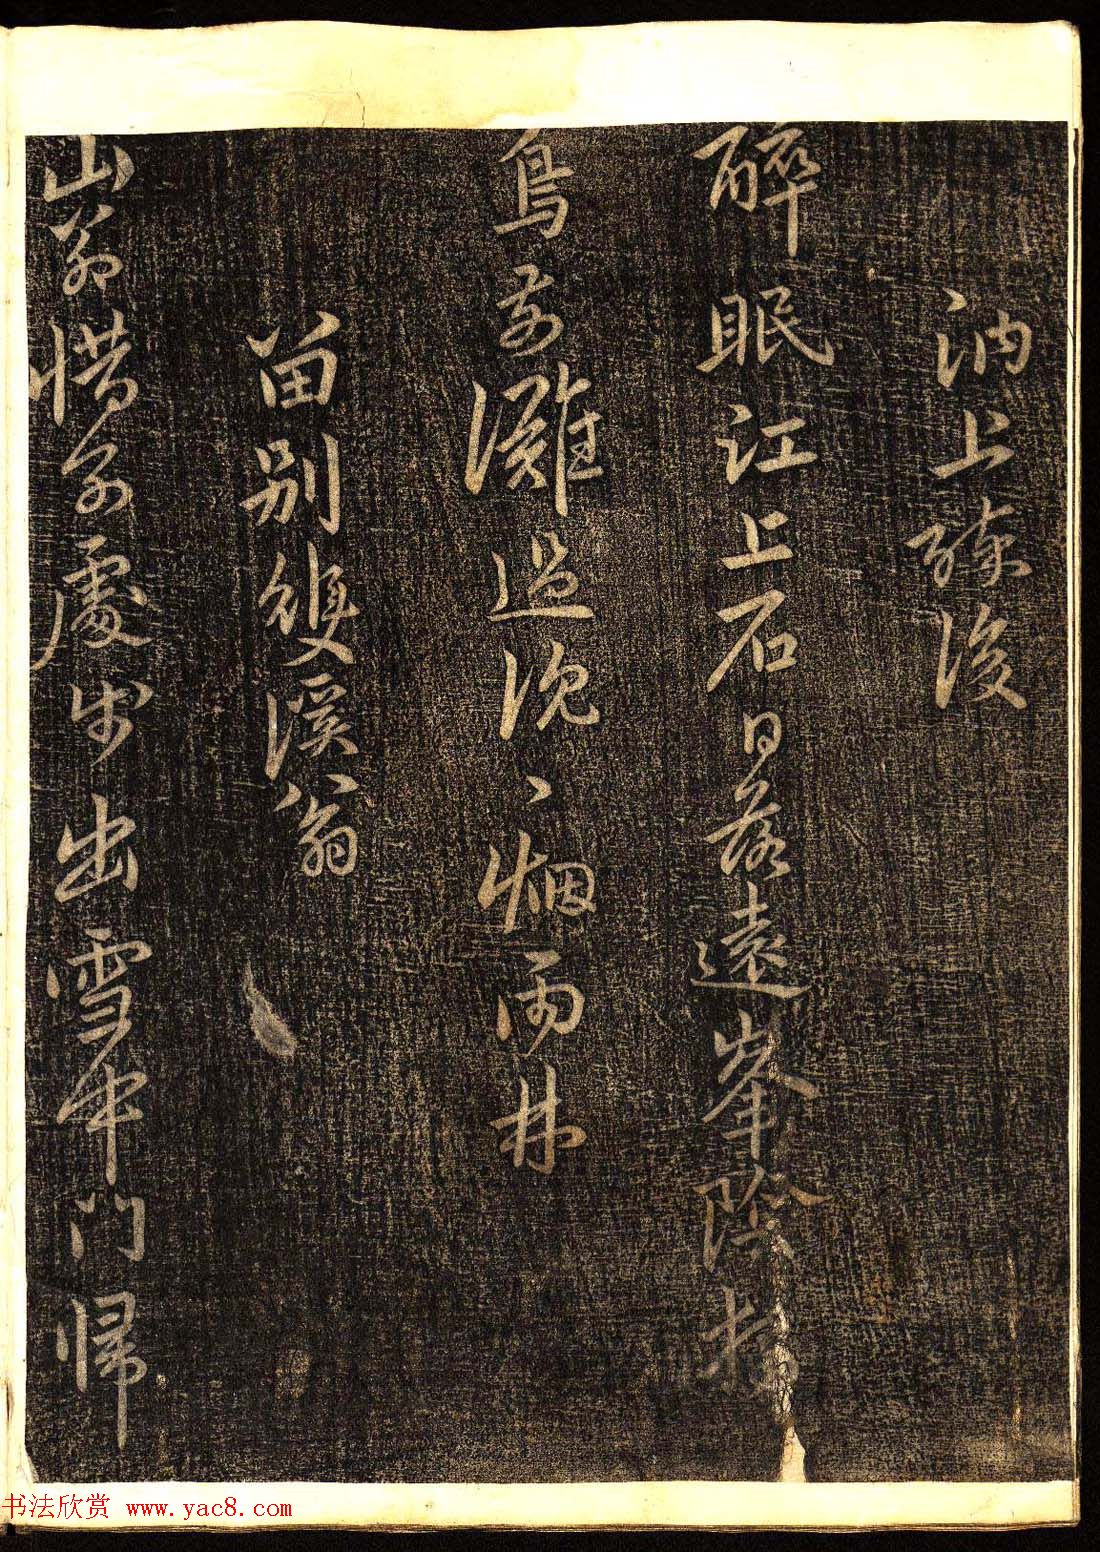 汭上疎後
醉眠江上石日落遠峯陰
鳥前灘過沈〻烟雨林
留別雙溪翁
山翁惜別處步出雪中門歸
书法欣赏 www.yac8.com